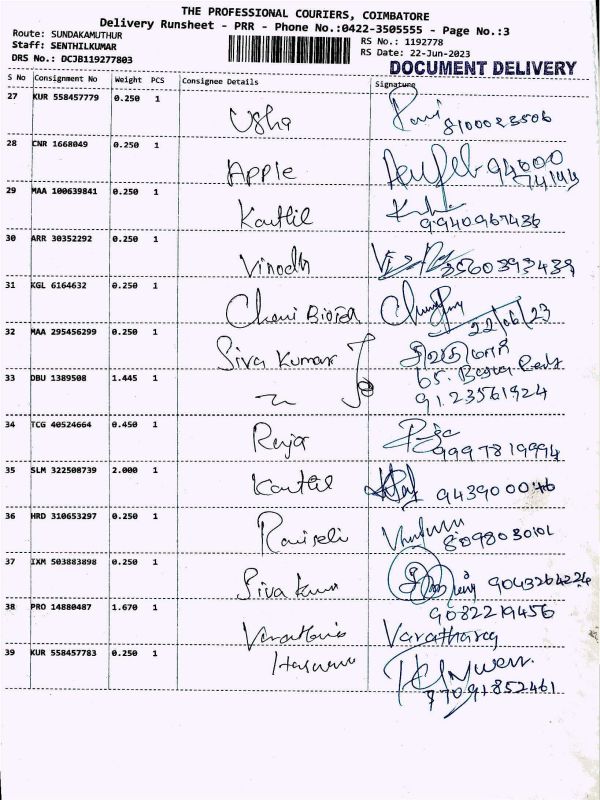 THE PROFESSIONAL COURIERS, COIMBATORE
Delivery Runsheet - PRR - Phone No.:0422-3505555 - Page No.:3
Route: SUNDAKAMUTHUR
Staff: SENTHILKUMAR
DRS No.: DCJB119277803
RS No.: 1192778
RS Date: 22-Jun-2023
DOCUMENT DELIVERY
S No Consignment No Weight PCS Consignee Details Signature
27 KUR 558457779 0.250 1 Usha Ravi
8100023506
28 CNR 1668049 0.250 1 Apple 94000
74144
29 MAA 100639841 0.250 1 Karthil
9940967436
30 ARR 30352292 0.250 1 Vinodh
31 KGL 6164632 0.250 1
22/06/23
32 MAA 295456299 0.250 1 Siva Kumar சிவகுமார்
33 DBU 1389508 1.445 1 65.
9123561924
34 TCG 40524664 0.450 1 Raja Raja
9997819994
35 SLM 322508739 2.000 1 Karthil
9439000046
36 HRD 310653297 0.250 1
8098030101
37 IXM 503883898 0.250 1 Siva Kumar 9043264224
38 PRO 14880487 1.670 1 9082219456
Varatharaj
39 KUR 558457783 0.250 1
87091852461